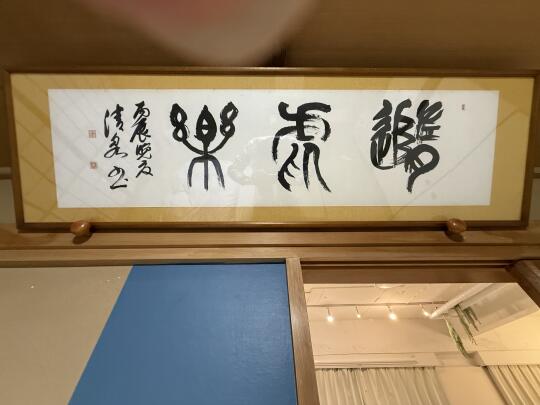 隨處樂
丙辰晩夏
清泉書